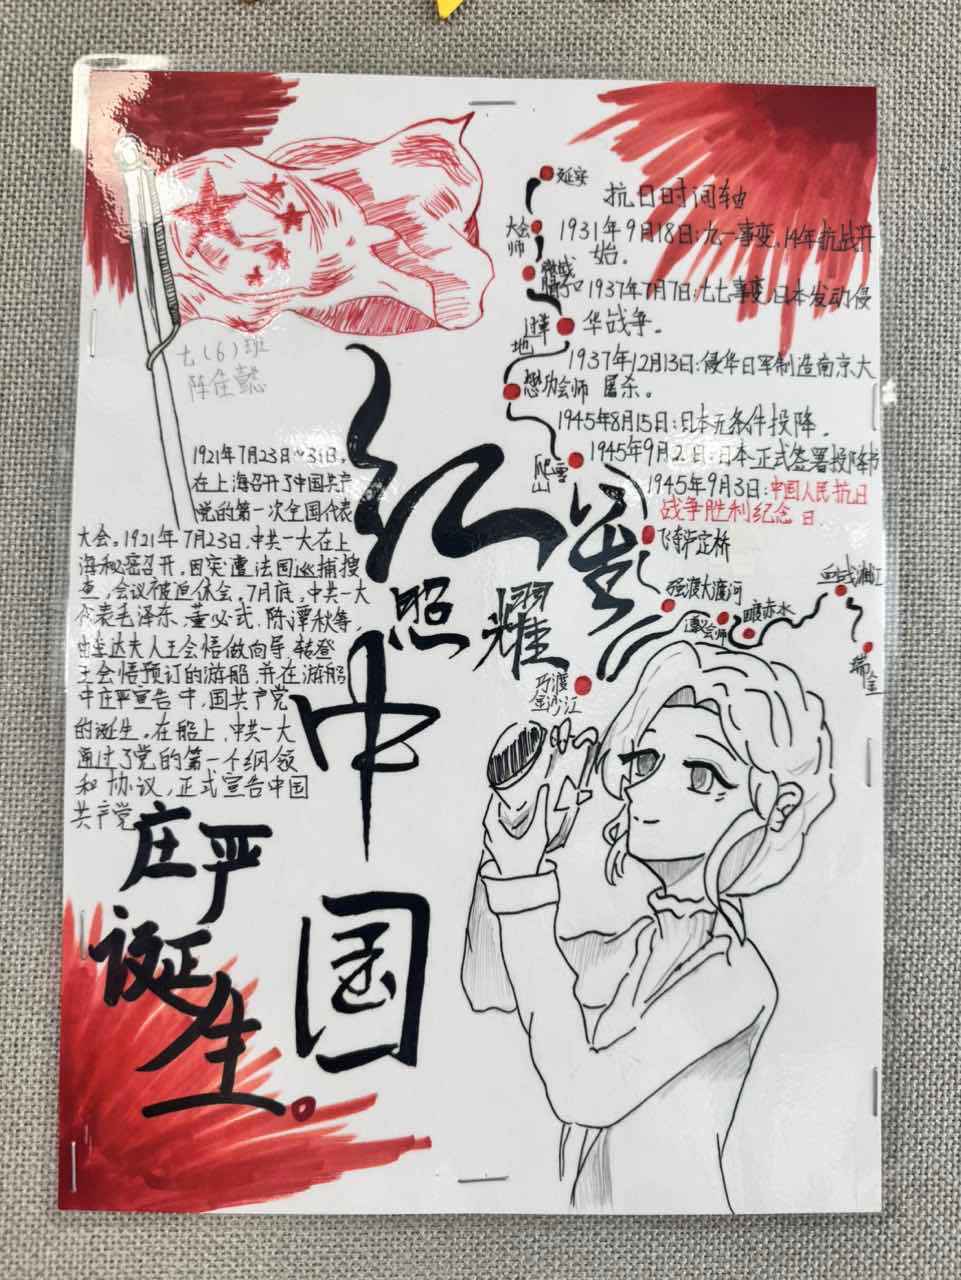 七(6)班
陈佳懿
1921年7月23日~31日,
在上海召开了中国共产
党的第一次全国代表
大会。1921年7月23日,中共一大在上
海秘密召开,因突遭法国巡捕搜
查,会议被迫休会,7月底,中共一大
代表毛泽东、董必武、陈潭秋等,
由李达夫人王会悟做向导,转登
王会悟预订的游船,并在游船
中庄严宣告中,国共产党
的诞生。在船上,中共一大
通过了党的第一个纲领
和协议,正式宣告中国
共产党
庄严
诞生。
红
照耀
中
国
抗日时间轴
1931年9月18日:九一事变,14年抗战开
始。
1937年7月7日:七七事变,日本发动侵
华战争。
1937年12月13日:侵华日军制造南京大
屠杀。
1945年8月15日:日本无条件投降。
1945年9月2日:日本正式签署投降书
1945年9月3日:中国人民抗日
战争胜利纪念日.
延安
大会
师
腊子口
过草
地
懋功会师
爬雪
山
飞夺泸定桥
强渡大渡河
巧渡
金沙江
遵义会师
四渡赤水
血战湘江
瑞金